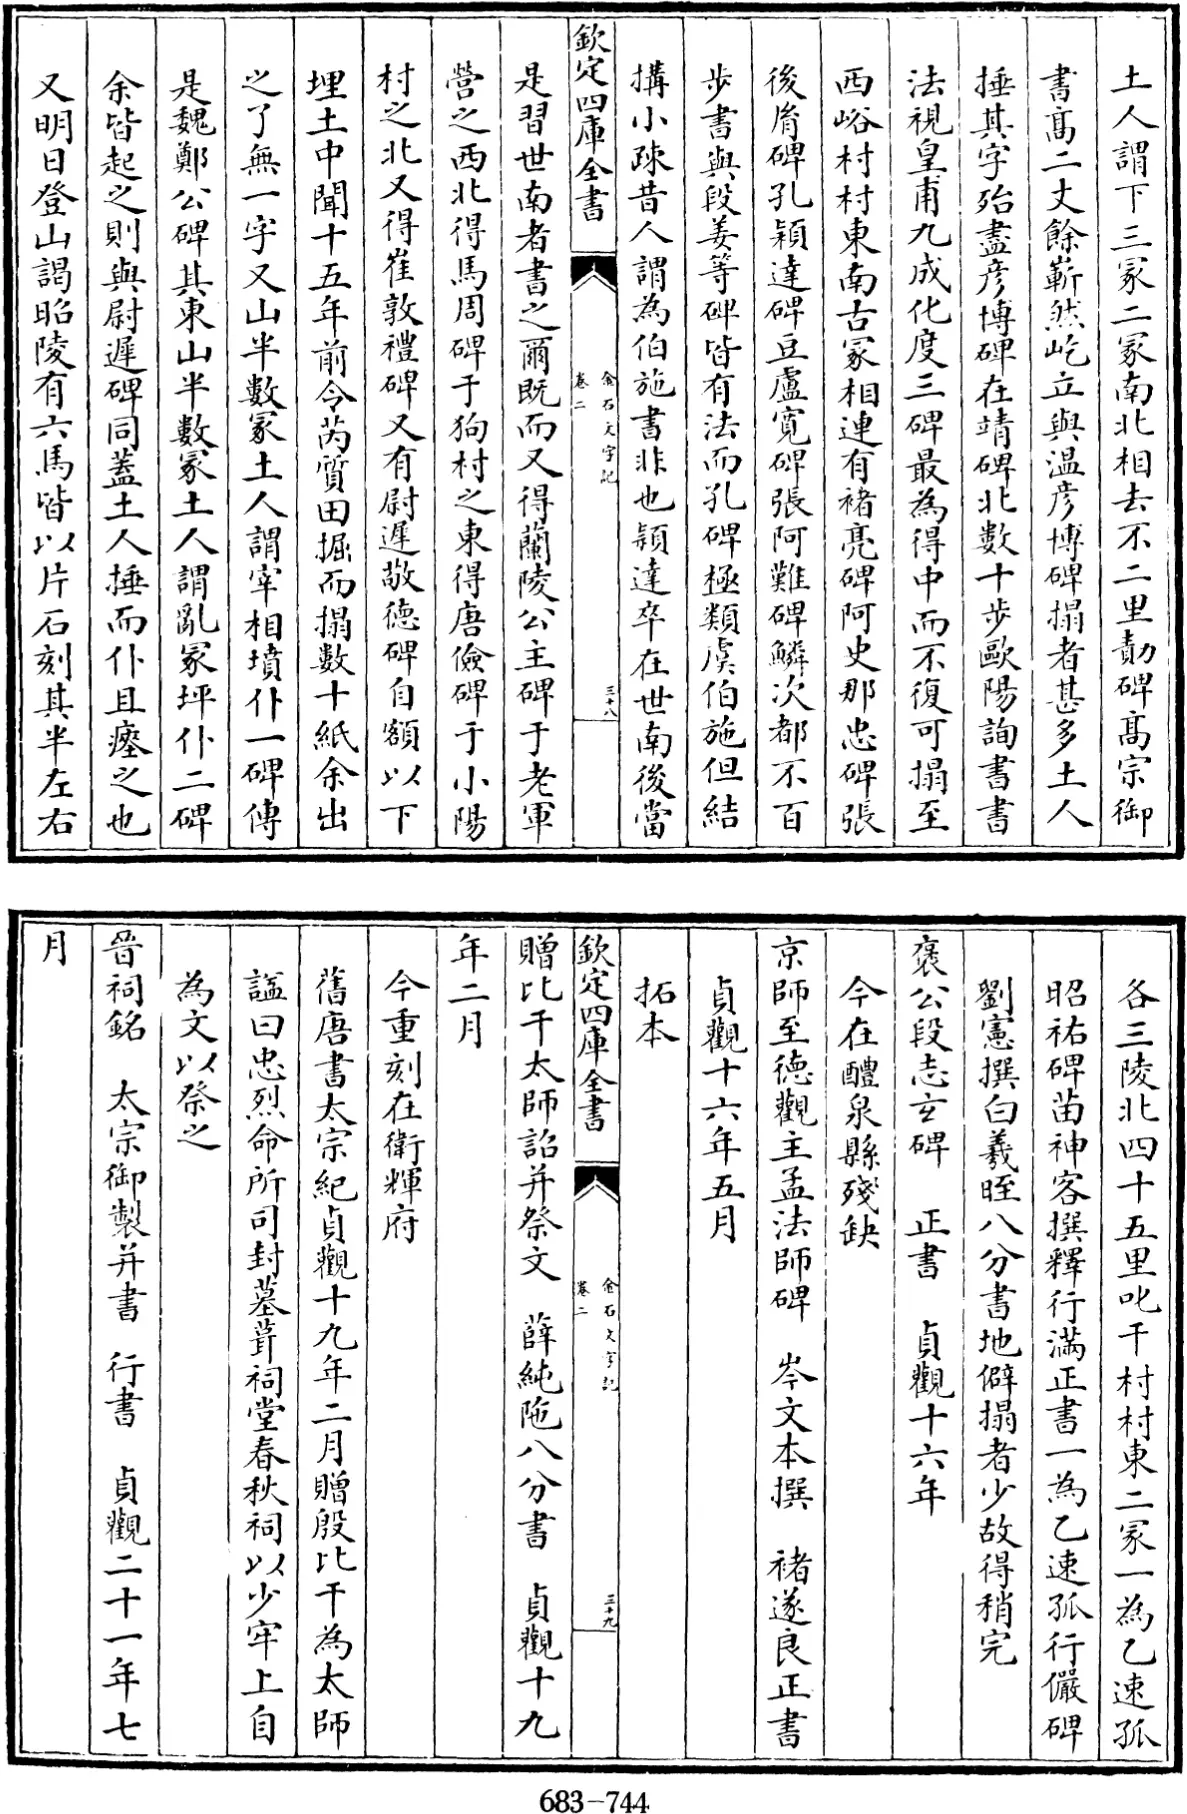 土人謂下三冢二冢南北相去不二里勣碑髙宗御
書髙二丈餘嶄然屹立與温彦博碑搨者甚多土人
捶其字殆盡彦博碑在靖碑北數十步歐陽詢書書
法視皇甫九成化度三碑最為得中而不復可搨至
西峪村村東南古冢相連有褚亮碑阿史那忠碑張
後胤碑孔頴達碑豆盧寛碑張阿難碑鱗次都不百
步書與段姜等碑皆有法而孔碑極類虞伯施但結
搆小疎昔人謂為伯施書非也頴達卒在世南後當
欽定四庫全書
金石文字記
卷二
三十八
是習世南者書之爾既而又得蘭陵公主碑于老軍
營之西北得馬周碑于狗村之東得唐儉碑于小陽
村之北又得崔敦禮碑又有尉遲敬徳碑自額以下
埋土中聞十五年前今芮質田掘而搨數十紙余出
之了無一字又山半數冢土人謂宰相墳仆一碑傳
是魏鄭公碑其東山半數冢土人謂亂冢坪仆二碑
余皆起之則與尉遲碑同蓋土人捶而仆且瘞之也
又明日登山謁昭陵有六馬皆以片石刻其半左右
各三陵北四十五里叱干村村東二冢一為乙速孤
昭祐碑苗神客撰釋行滿正書一為乙速孤行儼碑
劉憲撰白羲晊八分書地僻搨者少故得稍完
褒公段志玄碑 正書 貞觀十六年
今在醴泉縣殘缺
京師至徳觀主孟法師碑 岑文本撰 褚遂良正書
貞觀十六年五月
拓本
欽定四庫全書
金石文字記
卷二
三十九
贈比干太師詔并祭文 薛純陁八分書 貞觀十九
年二月
今重刻在衛輝府
舊唐書太宗紀貞觀十九年二月贈殷比干為太師
諡曰忠烈命所司封墓葺祠堂春秋祠以少牢上自
為文以祭之
晉祠銘 太宗御製并書 行書 貞觀二十一年七
月
683-744